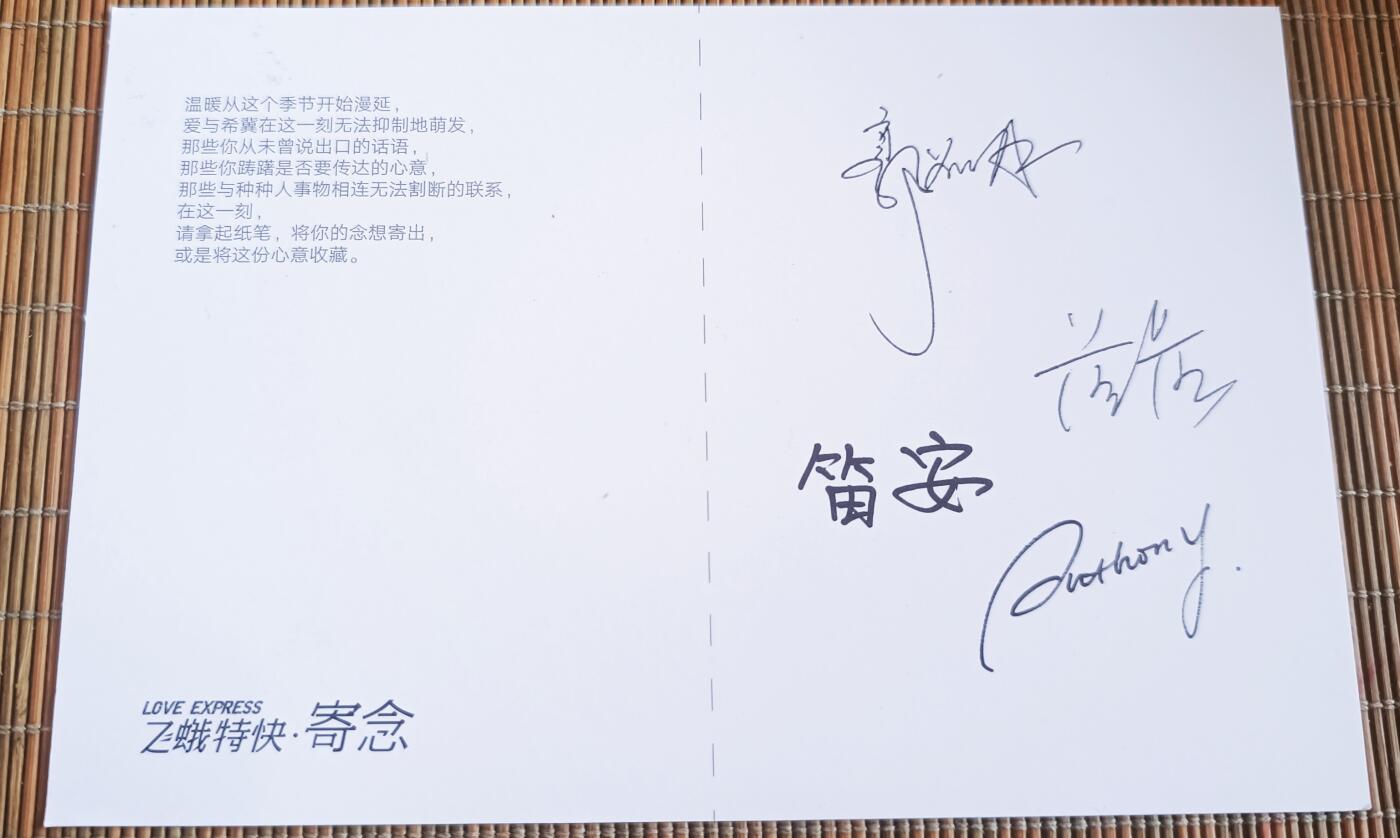 温暖从这个季节开始漫延，
爱与希冀在这一刻无法抑制地萌发，
那些你从未曾说出口的话语，
那些你踌躇是否要传达的心意，
那些与种种人事物相连无法割断的联系，
在这一刻，
请拿起纸笔，将你的念想寄出，
或是将这份心意收藏。
LOVE EXPRESS
飞蛾特快·寄念
笛安
Anthony.